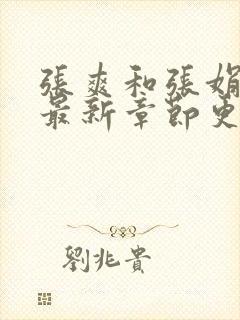 張爽和張娟
最新章節更
劉兆貴